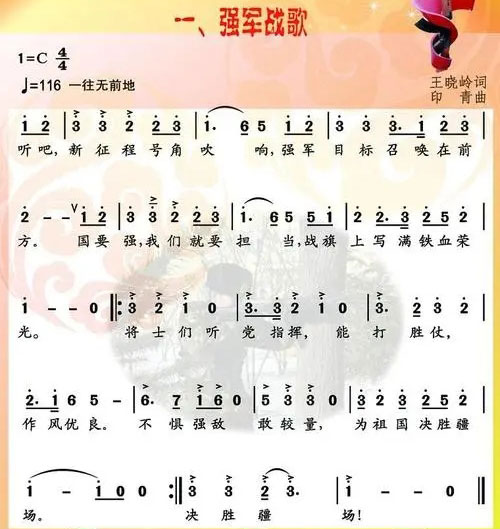 一、强军战歌
1=C 4/4
♩=116 一往无前地
王晓岭词
印 青曲
1 2 | 3 3 3 2 2 3 | 1· 6 5 1 3 | 2 2 3 3· 2 2 3 |
听吧,新征程号角吹 响,强军目标召唤在前
2 - - V 1 2 | 3 3 2 2 3 | 1· 6 5 5 1 | 2 2· 3 2 5 5 2 |
方。 国要强,我们就要担 当,战旗上写满铁血荣
1 - - 0 ‖: 3 2 1 0 | 3· 3 2 1 0 | 2· 3 2 0 |
光。 将士们听 党指挥,能打胜仗,
2· 1 6 5 - | 6· 7 1 6 0 | 5 3 3 3 0 | 2· 2 2 3 2 3 |
作风优良。不惧强敌 敢较量,为祖国决胜疆
1 - - - | 1 - 1 0 0 :‖ 3 3 2 3· | 1 - - 0 ‖
场。 决胜疆 场!